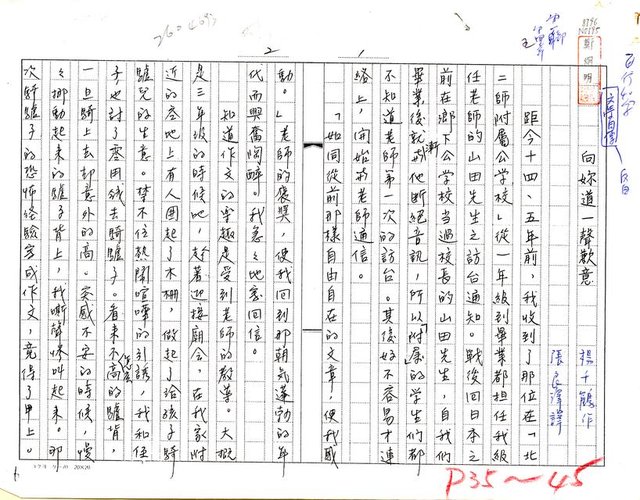 向妳道一聲歉意
楊千鶴作
張良澤譯
距今十四、五年前，我收到了那位在「北
二師附屬公學校」從一年級到畢業都担任我級
任老師的山田先生之訪台通知。戰後回日本之
前在鄉下公學校當過校長的山田先生，自我們
畢業後就漸和他断絕音訊，所以「附属」的学生們都
不知道老師第一次的訪台。其後好不容易才連
絡上，開始和老師通信。
「如同從前那樣自由自在的文章，使我感
動。」老師的褒獎，使我回到那朝気蓬勃的年
代而興奮陶醉。我急急地寫回信。
知道作文的樂趣是受到老師的教導。大概
是三年級的時候吧，趁著迎接廟会，在我家附
近的空地上有人圍起了木柵，做起了給孩子騎
驢兒的生意。禁不住熱鬧喧嘩的引誘，我和侄
子也討了零用錢去騎驢子。看來不高的驢背，
一旦騎上去却意外的高。突感不安的時候，慢
々挪動起來的驢子背上，我嘶聲慘叫起來。那
次騎驢子的恐怖経驗寫成作文，竟得了甲上。
2
1
鄭炯明
P35～45